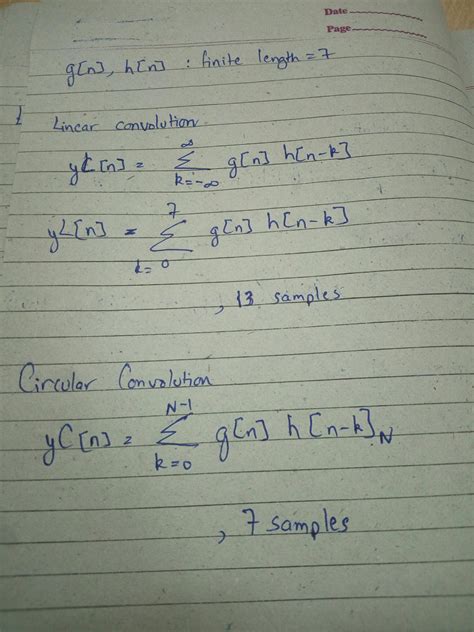 Date
Page
g[n], h[n] : finite length = 7
Linear convolution
yL[n] = ∞ Σ k=-∞ g[n] h[n-k]
yL[n] = 7 Σ k=0 g[n] h[n-k]
, 13 samples
Circular Convolution
yC[n] = N-1 Σ k=0 g[n] h[n-k]N
, 7 samples